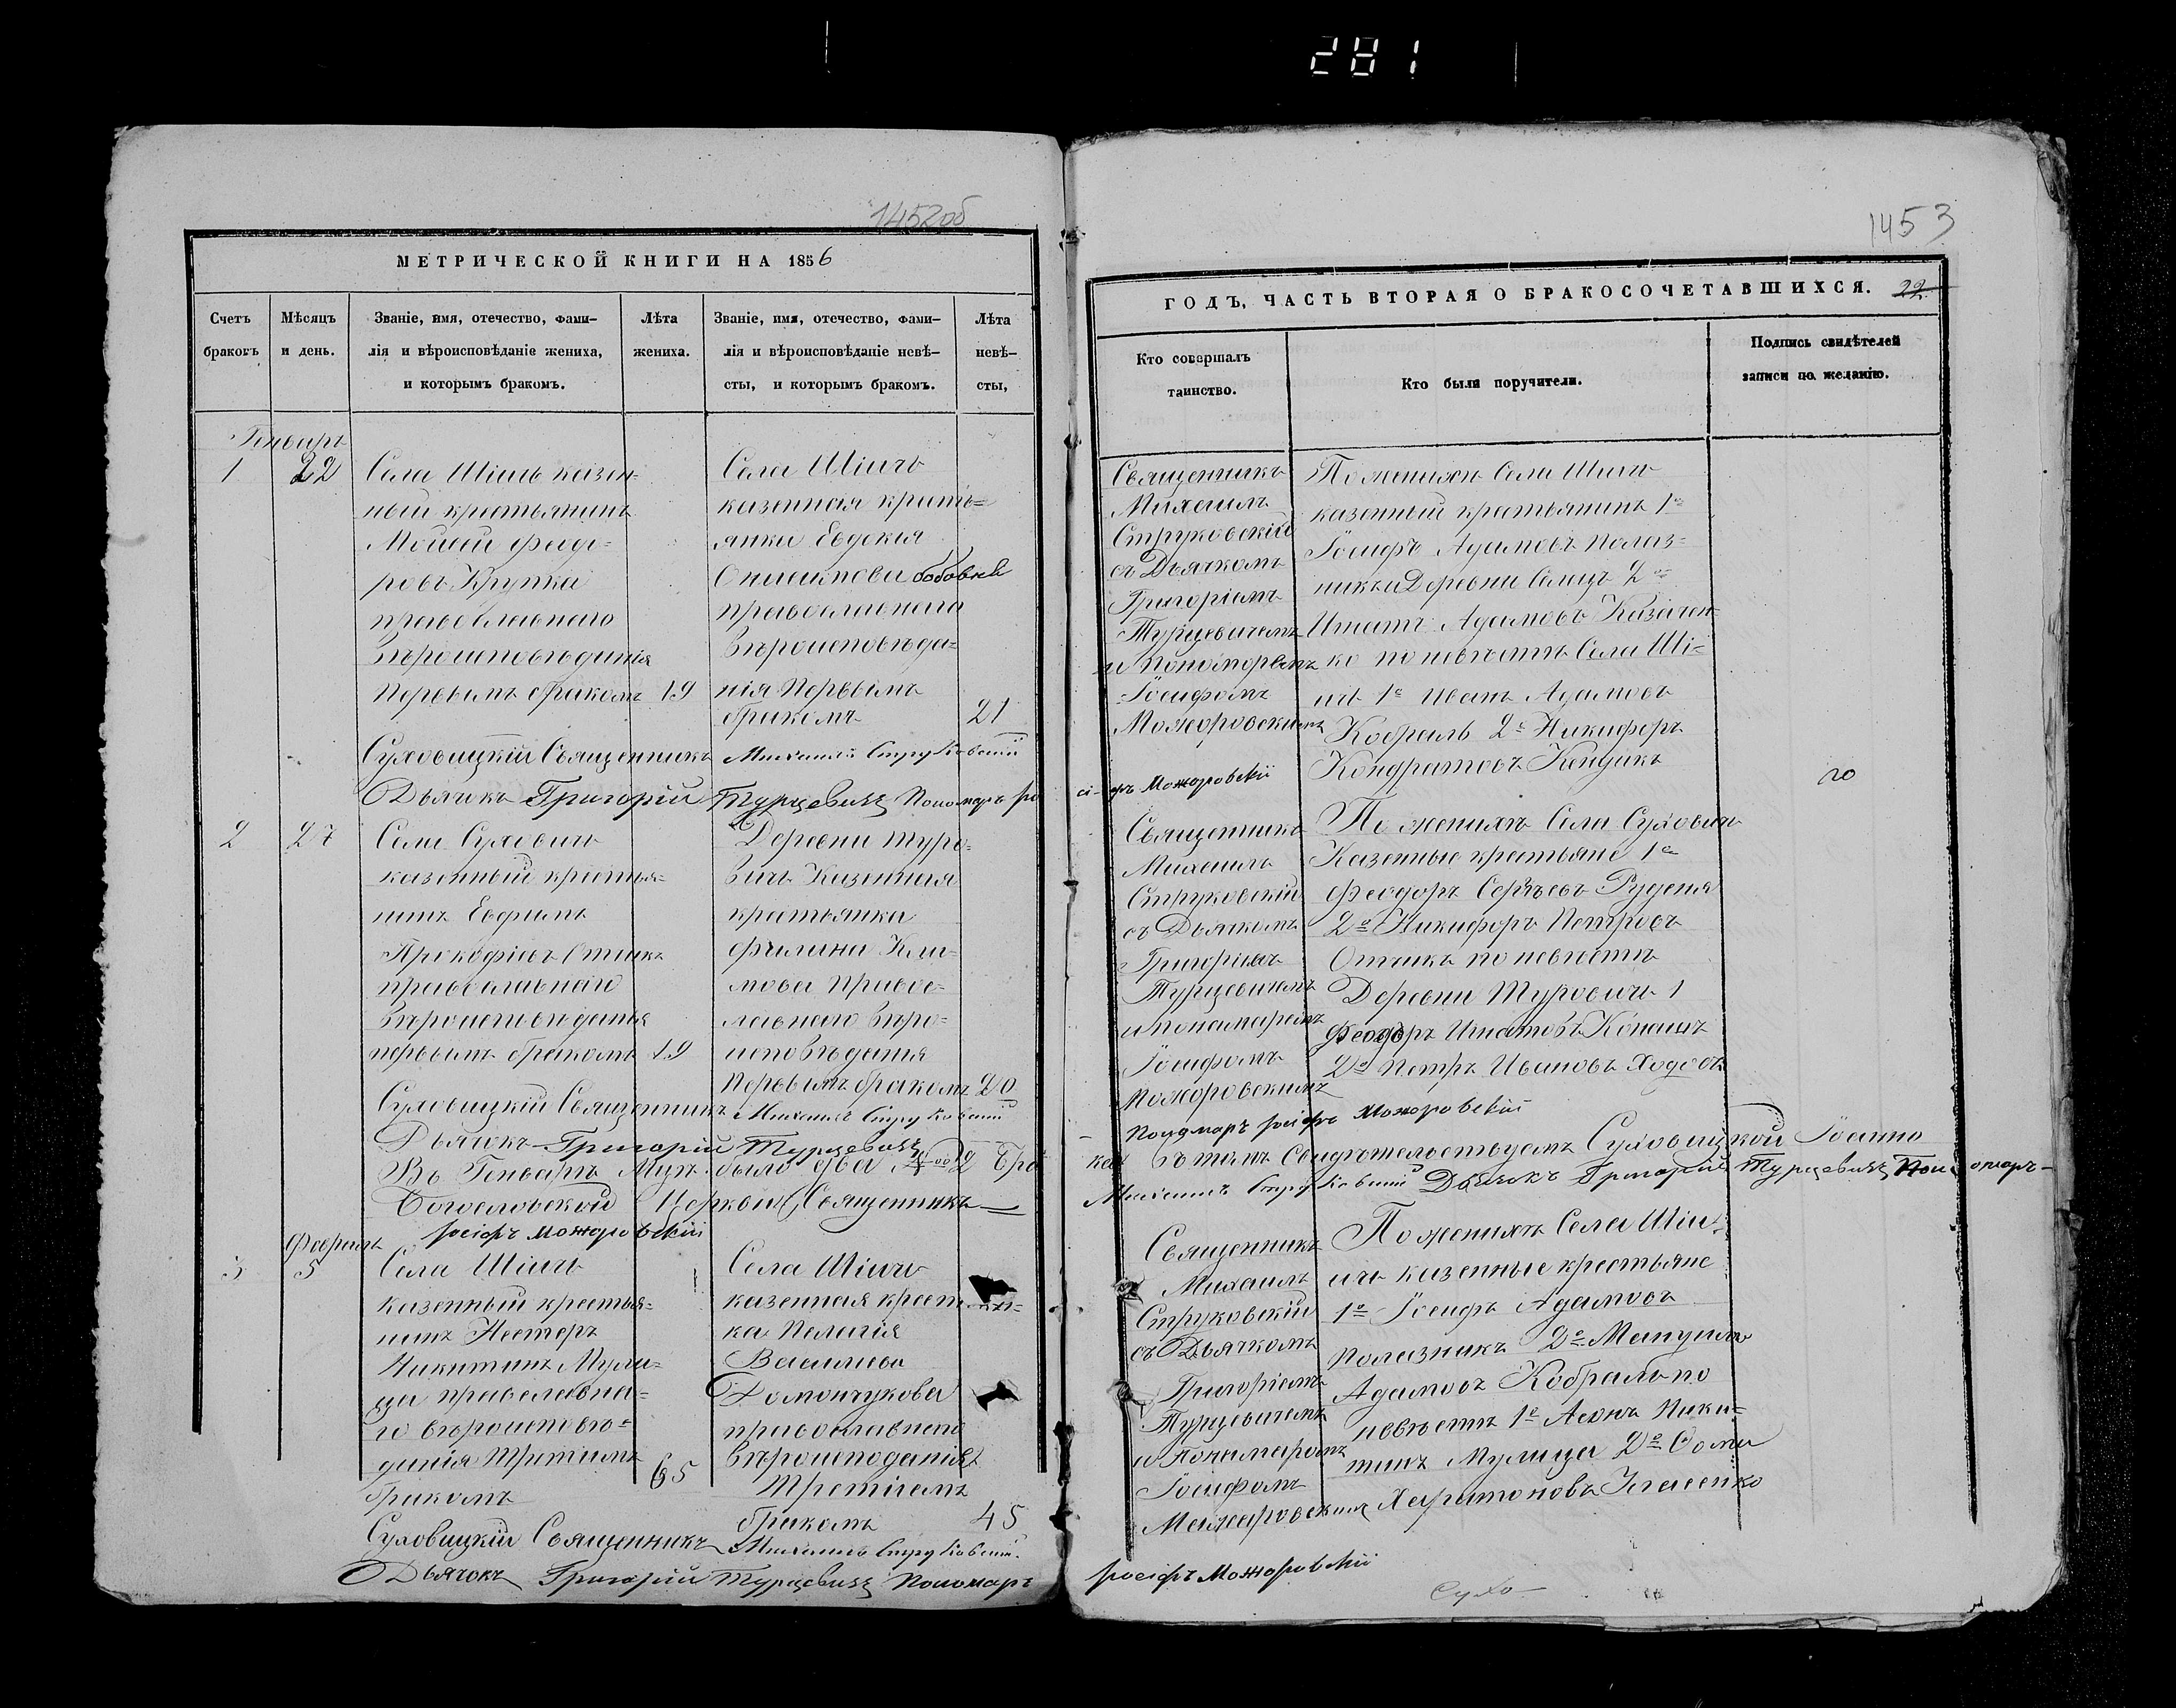 281
1452об
МЕТРИЧЕСКОЙ КНИГИ НА 1856
Счетъ браковъ
Мѣсяцъ и день.
Званіе, имя, отечество, фами-
лія и вѣроисповѣданіе жениха,
и которымъ бракомъ.
Лѣта
жениха.
Званіе, имя, отечество, фами-
лія и вѣроисповѣданіе невѣ-
сты, и которымъ бракомъ.
Лѣта
невѣ-
сты,
Генварь
1 22
Села Шіичь казен-
ный крестьянинъ
Моисей Федо-
ровъ Крупка
православнаго
вѣроисповѣданія
первымъ бракомъ 19
Села Шіичь
казенная кресть-
янка Евдокія
Онисимова Бобовкев
православнаго
вѣроисповѣда-
нія Первымъ
бракомъ 21
Суховицкій Священникъ Михаилъ Струковскій
Дьячокъ Григорій Турцевичъ Пономарь Іо
2 27
Села Суховичь
казенный крестья-
нинъ Евфимъ
Прокофіевъ Отчикъ
православнаго
вѣроисповѣданія
первымъ бракомъ 19
Деревни Туро-
вичь Казенная
крестьянка
Кли-
мова Правос-
лавнаго вѣро-
исповѣданія
Первымъ бракомъ 20
Суховицкій Священникъ Михаилъ Струковскій
Дьячокъ Григорій Турцевичъ
Въ Генварѣ Мцѣ было два 2 бра
Богословской Церкви Священникъ
Іосифъ Можаровскій
Февраль
3 5
Села Шіичь
казенный крестья-
нинъ Нестеръ
Никитинъ Мули-
ца православна-
го вѣроисповѣ-
данія Третимъ
бракомъ 65
Села Шіичь
казенная крест
ка Пелагія
Василіева
Домончукова
православнаго
вѣроисподанія
Третіемъ
бракомъ 45
Суховицкій Священникъ Михаилъ Струковскій.
Дьячокъ Григорій Турцевичъ Пономарь
1453
ГОДЪ, ЧАСТЬ ВТОРАЯ О БРАКОСОЧЕТАВШИХСЯ. 22.
Кто совершалъ
таинство.
Кто были поручители.
Подпись свидѣтелей
записи по желанію.
Священникъ
Михаилъ
Струковскій
съ Дьячкомъ
Григоріемъ
Турцевичемъ
и Пономоремъ
Іосифомъ
Можоровскимъ
По женихѣ Села Шіичь
казенный крестьянинъ 1е
Іосифъ Адамовъ Полаз-
никъ и Деревни Селицъ 2е
Игнатъ Адамовъ Казачен-
ко по невѣстѣ Села Ші-
ичь 1е Иванъ Адамовъ
Кобраль 2е Никифоръ
Кондратовъ Кендикъ
сифъ Можоровскій
Священникъ
Михаилъ
Струковскій
съ Дьячкомъ
Григоріемъ
Турцевичемъ
и пономаремъ
Іосифомъ
Можоровскимъ
По женихѣ Села Суховичь
Казенные крестьяне 1е
Феодоръ Сергѣевъ Руденя
2е Никифоръ Петровъ
Отчикъ по невѣстѣ
Деревни Туровичь 1
Феодоръ Игнатовъ Конашъ
2е Петръ Ивановъ Ходосъ
Пономарь Іосифъ Можоровскій
ка въ томъ Свидѣтельствуемъ Суховицкой Іоанно
Михаилъ Струковскій Дьячокъ Григорій Турцевичъ Пономарь
Священникъ
Михаилъ
Струковскій
съ Дьячкомъ
Григоріемъ
Турцевичемъ
и Пономаремъ
Іосифомъ
Можаровскимъ
По женихѣ Села Шіи-
ичь казенные крестьяне
1е Іосифъ Адамовъ
Полазникъ 2е Мануилъ
Адамовъ Кобраль по
невѣстѣ 1е Аеонъ Ники-
тинъ Мулица 2е Фома
Харитоновъ Власенко
Іосифъ Можаровскій
Сухо-